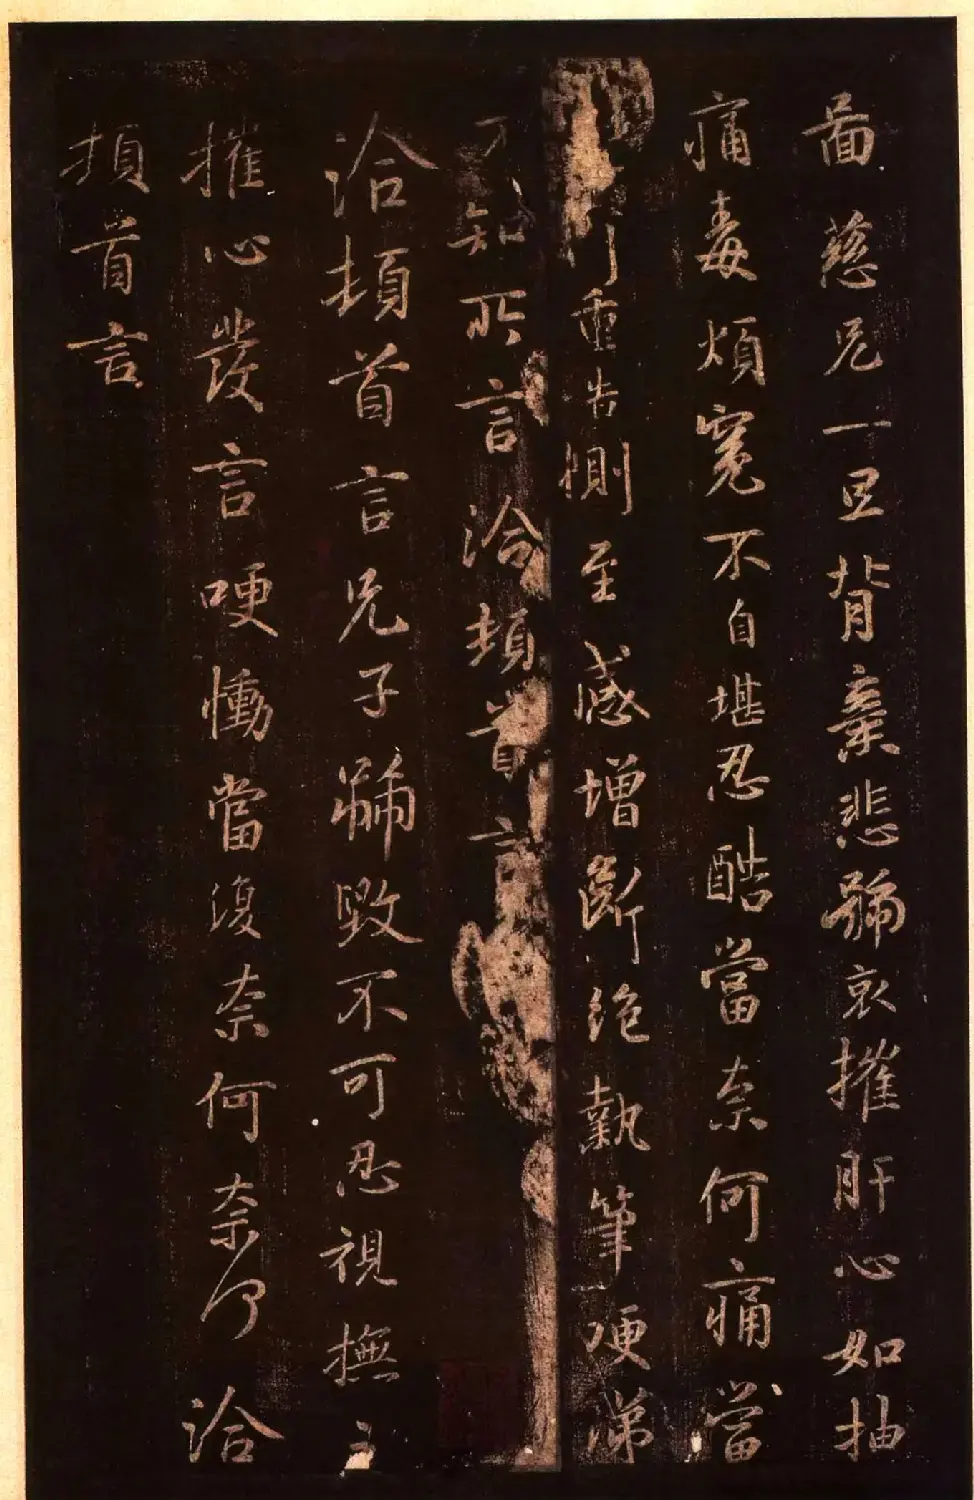 啚慈兄一旦背棄悲號哀摧肝心如抽
痛毒煩冤不自堪忍酷當奈何痛當
重告惻至感增斷絶執筆哽涕
不知所言洽頓首言
洽頓首言兄子號毀不可忍視撫之
摧心發言哽慟當復奈何奈何洽
頓首言